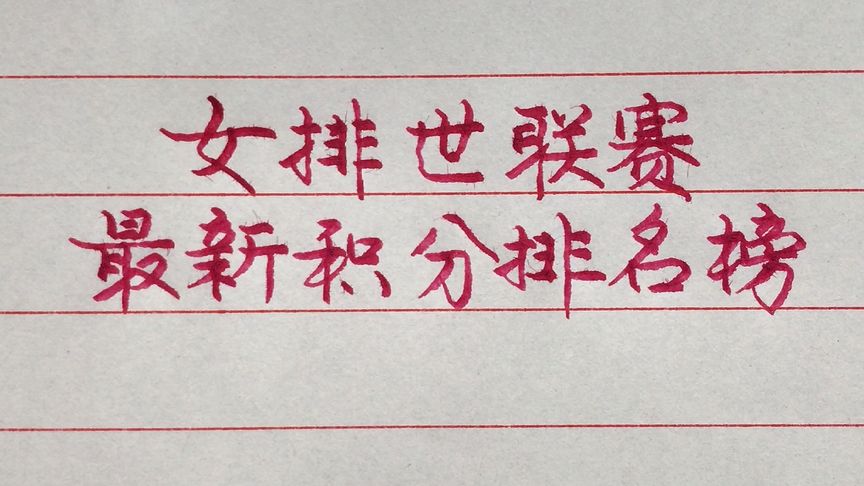 女排世联赛
最新积分排名榜